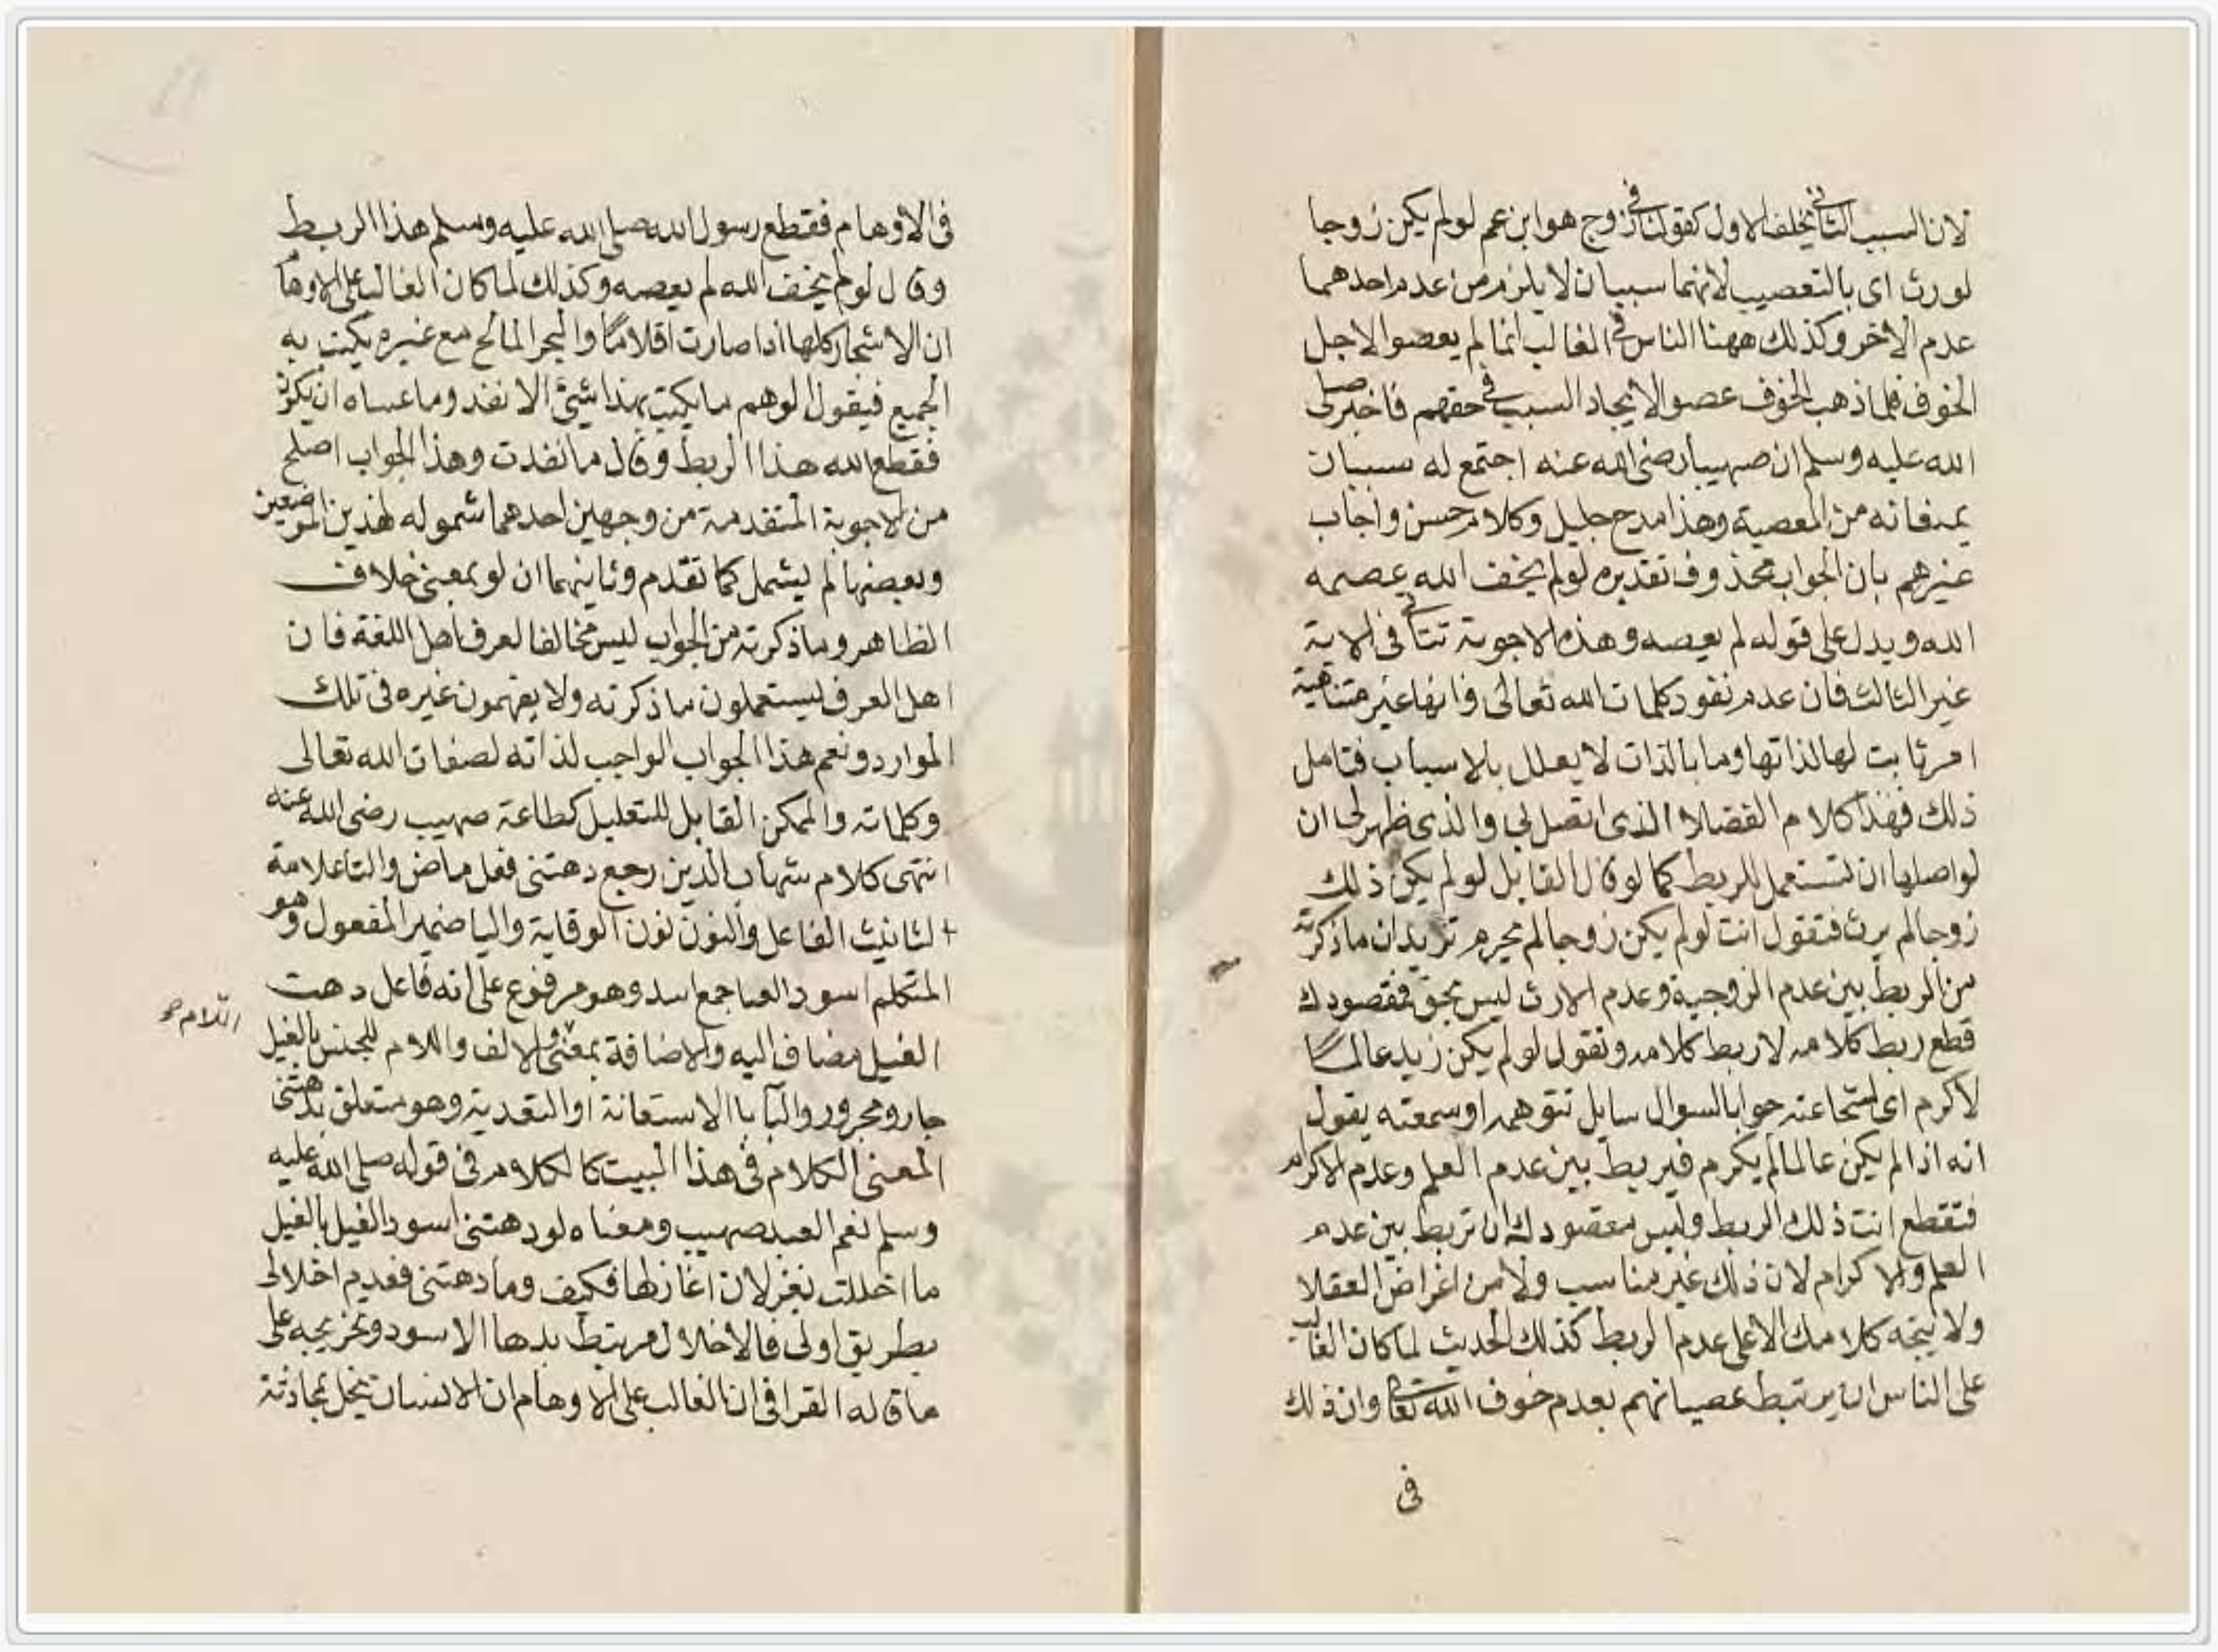 لان السبب الثاني يخلف الاول كقولك في زوج هو ابن عم لو لم يكن زوجا
لورث اى بالتعصيب لانهما سببان لا يلزم من عدم احدهما
عدم الاخر وكذلك ههنا الناس في الغالب انما لم يعصوا لاجل
الخوف فلما ذهب الخوف عصوا لايجاد السبب في حقهم فاخبر صلى
الله عليه وسلم ان صهيبا رضى الله عنه اجتمع له سببان
يمنعانه من المعصية وهذا مدح جليل وكلام حسن واجاب
غيرهم بان الجواب محذوف تقديره لو لم يخف الله عصمه
الله ويدل على قوله لم يعصه وهذه الاجوبة تتأتى فى الاية
غير الثالث فان عدم نفود كلمات الله تعالى وانها غير متناهية
امر ثابت لها لذاتها وما بالذات لا يعلل بالاسباب فتامل
ذلك فهذا كلام الفضلا الذى اتصل بي والذى ظهر لى ان
لو اصلها ان تستعمل للربط كما لو قال القايل لو لم يكن ذلك
زوجا لم يرث فتقول انت لو لم يكن زوجا لم يحرم تريد ان ما ذكرته
من الربط بين عدم الزوجية وعدم الارث ليس بحق فمقصودك
قطع ربط كلامه لا ربط كلامه وتقول لو لم يكن زيد عالما
لاكرم اى لشجاعته جوابا لسوال سايل تتوهمه او سمعته يقول
انه اذا لم يكن عالما لم يكرم فيربط بين عدم العلم وعدم الاكرام
فتقطع انت ذلك الربط وليس مقصودك ان تربط بين عدم
العلم والاكرام لان ذلك غير مناسب ولا من اغراض العقلا
ولا يتجه كلامك الا على عدم الربط كذلك الحديث لما كان الغالب
على الناس ان يرتبط عصيانهم بعدم خوف الله تعالى وان ذلك
فى
فى الاوهام فقطع رسول الله صلى الله عليه وسلم هذا الربط
وقال لو لم يخف الله لم يعصه وكذلك لما كان الغالب على الاوهام
ان الاشجار كلها اذا صارت اقلامًا والبحر المالح مع غيره يكتب به
الجميع فيقول الوهم ما يكتب بهذا شئ الا نفد وما عساه ان يكون
فقطع الله هذا الربط وقال ما نفدت وهذا الجواب اصلح
من الاجوبة المتقدمة من وجهين احدهما شموله لهذين الموضعين
وبعضها لم يشمل كما تقدم وثانيهما ان لو بمعنى خلاف
الظاهر وما ذكرته من الجواب ليس مخالفا لعرف اهل اللغة فان
اهل العرف يستعملون ما ذكرته ولا يفهمون غيره فى تلك
الموارد ونعم هذا الجواب الواجب لذاته لصفات الله تعالى
وكلماته والممكن القابل للتعليل كطاعة صهيب رضى الله عنه
انتهى كلام شهاب الدين رجع دهتنى فعل ماض والتا علامة
لتانيث الفاعل والنون نون الوقاية واليا ضمير المفعول وهو
المتكلم اسود الغبا جمع اسد وهو مرفوع على انه فاعل دهت
الغيل مضاف اليه والاضافة بمعنى والالف واللام للجنس بالغيل
اللام صح
جار ومجرور والبا با الاستعانة او التعدية وهو متعلق بدهتنى
المعنى الكلام فى هذا البيت كالكلام فى قوله صلى الله عليه
وسلم نعم العبد صهيب ومعناه لو دهتنى اسود الغيل بالغيل
ما اخللت بغزلان اغازلها فكيف وما دهتنى فعدم اخلالى
بطريق اولى فالاخلال مرتبط بدها الاسود وتخريجه على
ما قاله القرافى ان الغالب على الاوهام ان الانسان يخل بمحادثة